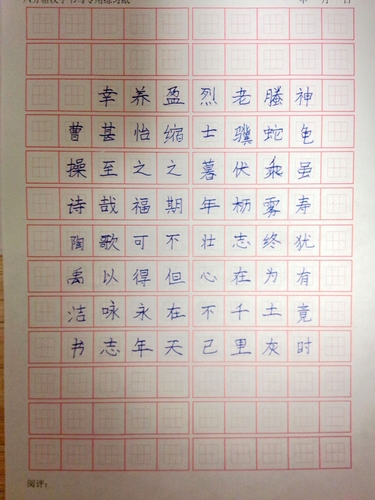 神龟虽寿犹有竟时
螣蛇乘雾终为土灰
老骥伏枥志在千里
烈士暮年壮心不已
盈缩之期不但在天
养怡之福可得永年
幸甚至哉歌以咏志
曹操诗陶禹洁书
阅评：